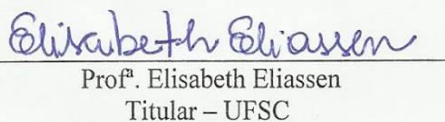 Elisabeth Eliassen
Profª. Elisabeth Eliassen
Titular – UFSC